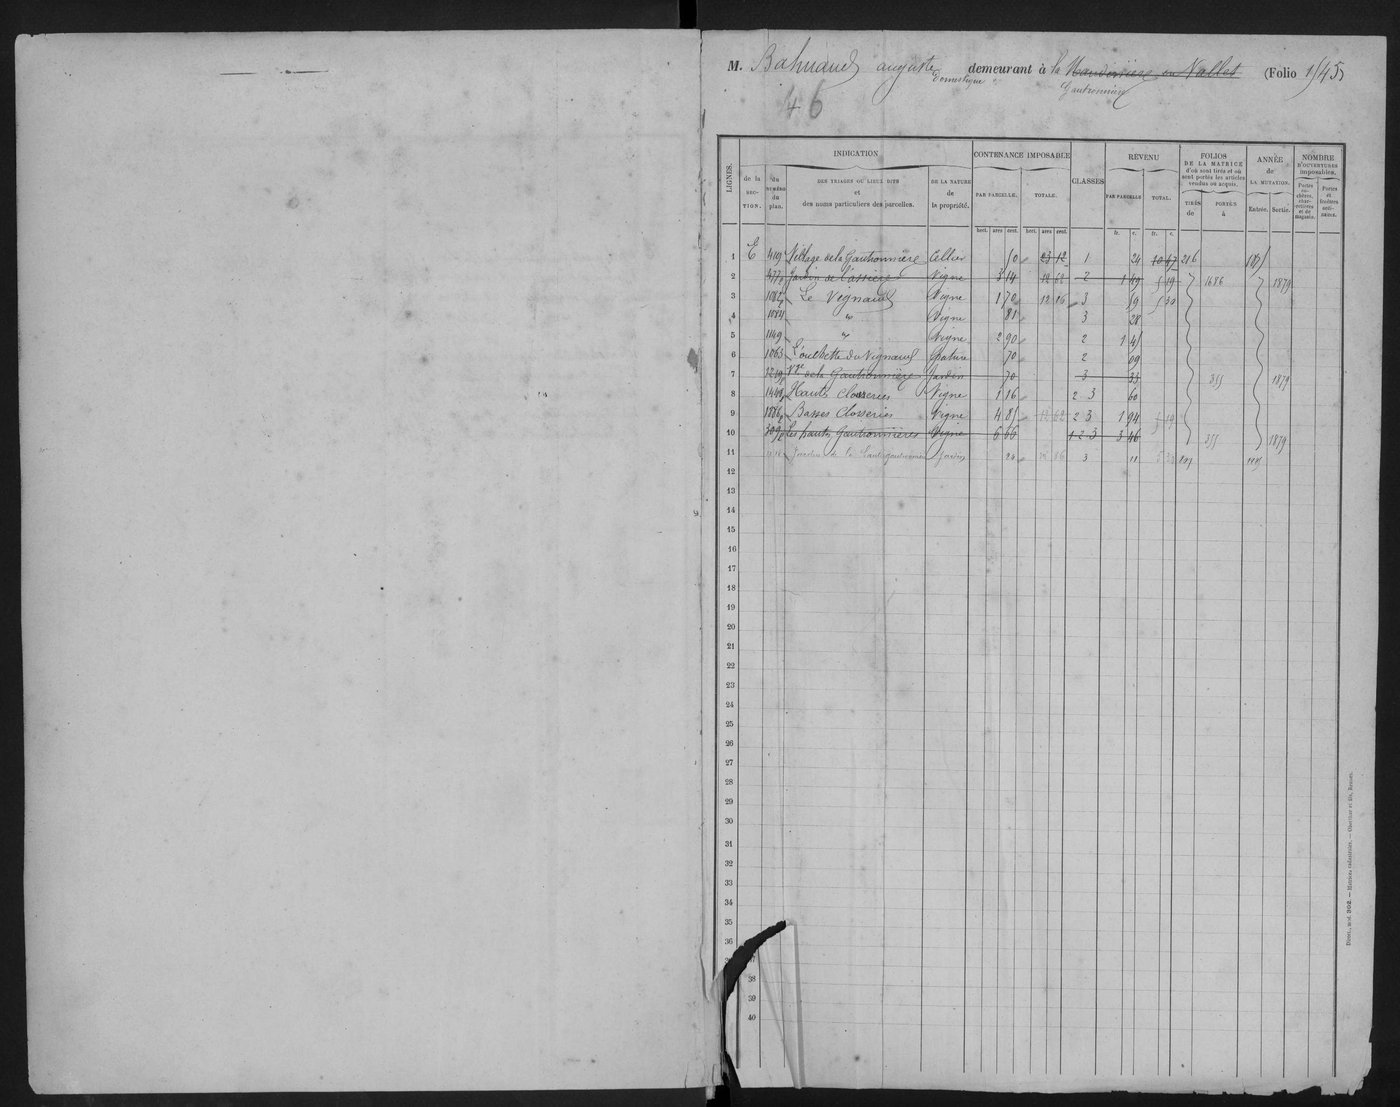 M. Bahuaud auguste demeurant à la Gautronnière (Folio 1545)
Domestique
46
LIGNES.
INDICATION
de la SECTION.
du NUMÉRO du plan.
DES TRIAGES OU LIEUX DITS et des noms particuliers des parcelles.
DE LA NATURE de la propriété.
CONTENANCE IMPOSABLE
PAR PARCELLE.
TOTALE.
hect. ares cent. hect. ares cent.
CLASSES
REVENU
PAR PARCELLE
TOTAL.
fr. c. fr. c.
FOLIOS DE LA MATRICE d'où sont tirés et où sont portés les articles vendus ou acquis.
TIRÉS de
PORTÉS à
ANNÉE de LA MUTATION.
Entrée. Sortie.
NOMBRE D'OUVERTURES imposables.
Portes et fenêtres ordinaires.
1 E 419 Village de la Gautronnière Cellier 50 23 12 1 24 10 47 216 1875
2 477 Jardin de l'assiere Vigne 3 14 12 62 2 1 49 5 19 1686 1879
3 1082 Le Vignaud Vigne 1 70 12 16 3 59 5 30
4 1084 " Vigne 81 3 28
5 1149 " Vigne 2 90 2 1 45
6 1063 L'ouchette du Vignaud Pature 70 2 09
7 Vge de la Gautronnière Jardin 70 3 33 355 1879
8 Hauts Closeries Vigne 1 16 2 3 60
9 1886 Basses Closseries Vigne 4 85 12 62 2 3 1 94 5 19
10 309 Les hautes Gautronnières Vigne 6 66 1 2 3 3 46 355 1879
11 Jardin de la Haute Gautronnière Jardin 24 3 11
12
13
14
15
16
17
18
19
20
21
22
23
24
25
26
27
28
29
30
31
32
33
34
35
36
37
38
39
40